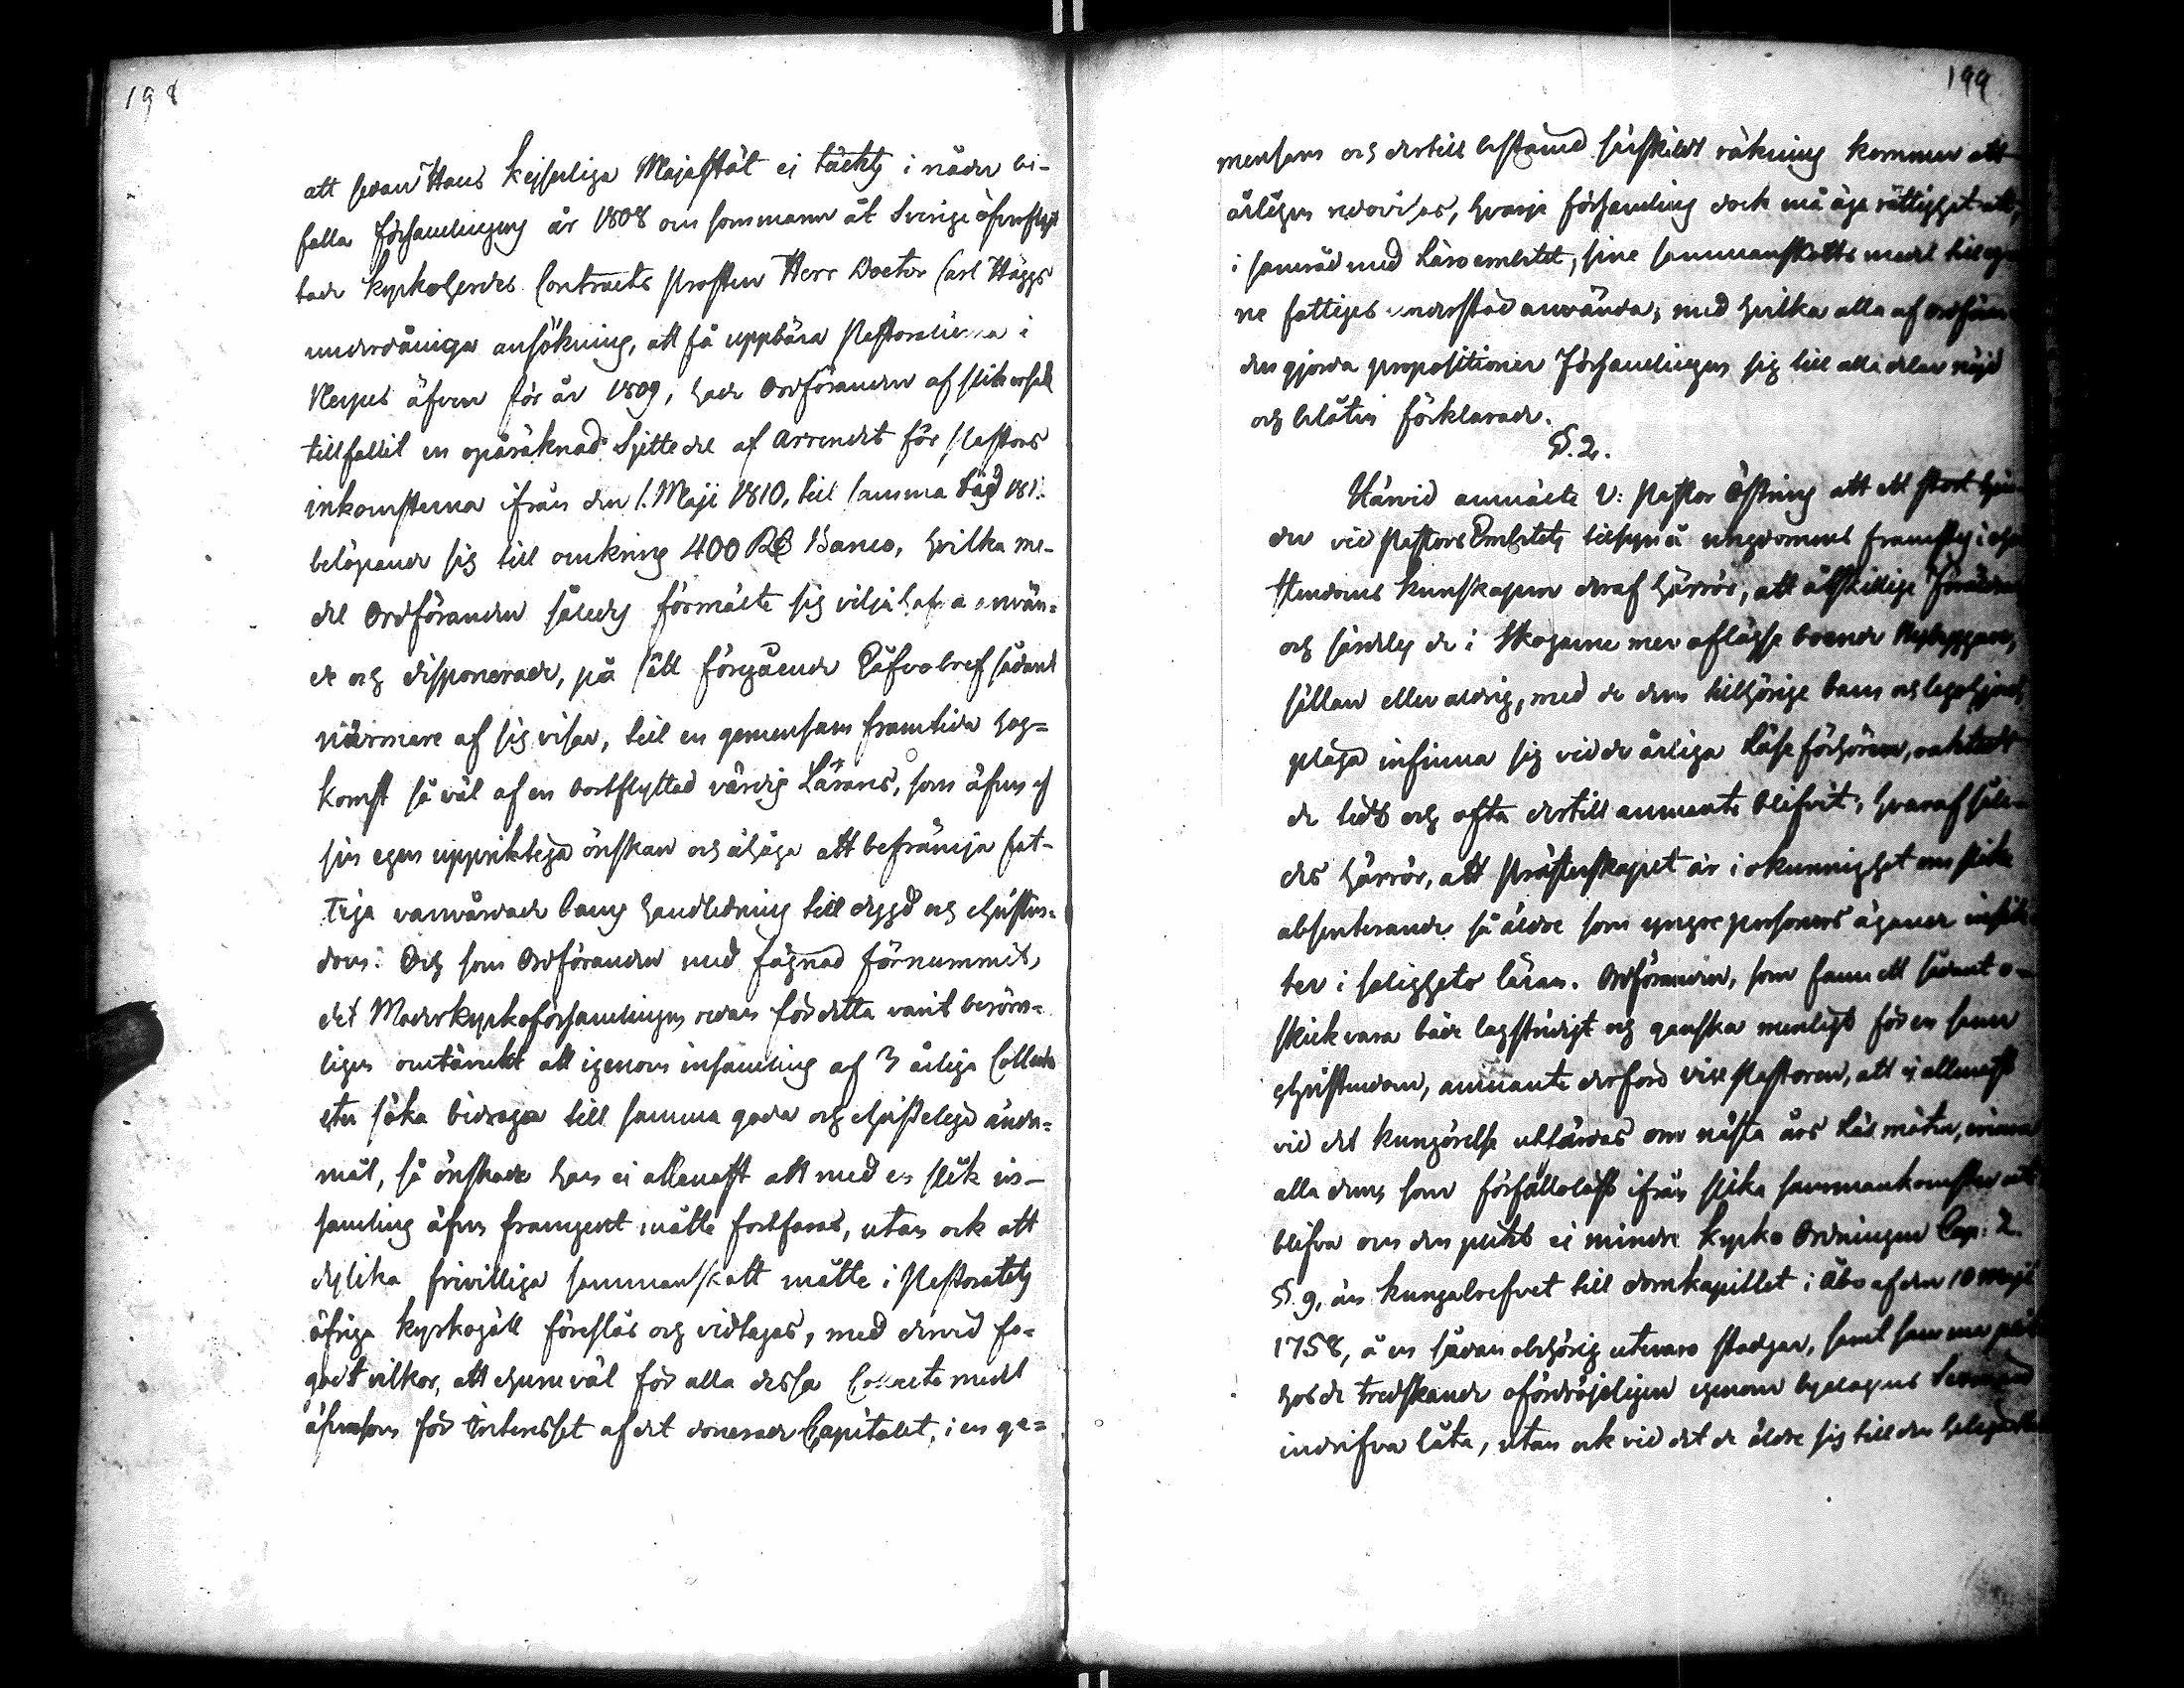 198
att sedan Hans Kejserliga Majestät ei täckts i nåder bi-
falla församlingens år 1808 om sommaren åt Sverige öfverflyt
tade Kyrkoherdes Contracts Prosten Herr Doctor Carl Häggs
underdåniga ansökning, att få uppbära Pastoralierna i
Nerpes äfven för år 1809, hade Ordföranden af slik orsak
tillfallit en opåräknad Sjettedel af Arrendet för Pastors
inkomsterna ifrån den 1. Maji 1810, till samma dag 181
belöpande sig till omkring 400 Rd Banco, hvilka me-
del Ordföranden således förmälte sig vilja hafva använ-
de och disponerade, på sätt föregående Gåfvobref sådant
närmare af sig visar, till en gemensam framtida hog-
komst så väl af en bortflyttad värdig Lärare, som äfven af
sin egen uppriktiga önskan och åhåga att befrämja fat-
tiga vanvårdade barns handledning till dygd och christen-
dom: Och som Ordföranden med fägnad förnummit,
det Moderkyrkoförsamlingen redan för detta varit beröm-
ligen omtänckt att igenom insamling af 3 årliga Collec
ter söka bidraga till samma goda och christeliga ända-
mål, så önskade han ei allenast att med en slik in-
samling äfven framgent måtte fortfaras, utan ock att
dylika frivilliga sammanskott måtte i Pastoratets
öfriga kyrkogäll föreslås och vidtagas, med dervid fo-
gadt vilkor, att ehuruväl för alla dessa Collects medel
äfvensom för Interesset af det donerade Capitalet, i en ge-
199
mensam och dertill bestämd särskildt räkning kommer att
årligen redovisas, hvarje församling dock må äga rättighet att,
i samråd med Läroembetet, sine sammanskotts medel till eg
ne fattiges understöd använda; med hvilka alla af Ordföran
den gjorda propositioner Församlingen sig till alla delar nöjd
och belåten förklarade.
§. 2.
Härvid anmälte V: Pastor Östring att ett stort hin
der vid Pastors Embetets tillsyn å ungdomens framsteg i chri
stendoms kunskapen deraf härrör, att åtskillige Föräldrar
och särdeles de i Skogarne mer aflägse boende Nybyggare,
sällan eller aldrig, med de dem tillhörige barn och legohjon
pläga infinna sig vid de årliga Läse förhören, oaktadt
de tidt och ofta dertill anmante blifvit, hvaraf såle-
des härrör, att Prästerskapet är i okunnighet om slike
absenterande så äldre som yngre personers ägande insik
ter i salighets läran. Ordföranden, som fann ett sådant o-
skick vara både lagstridigt och ganska menligt för en sann
christendom, anmante derföre vice Pastoren, att ei allenast
vid det kungörelse utfärdas om nästa års Läsmöten, erinra
alla dem, som förfallolöst ifrån slika sammankomster ute
blifva om den plikt ei mindre Kyrko Ordningen Cap: 2.
§. 9, än kungabrefvet till domkapitlet i Åbo af den 10 Maji
1758, å en sådan obehörig utevaro stadgar, samt samma plikt
hos de tredskande ofördröjeligen genom byelagens Sexmän
indrifva låta, utan ock vid det de äldre sig till den heliga